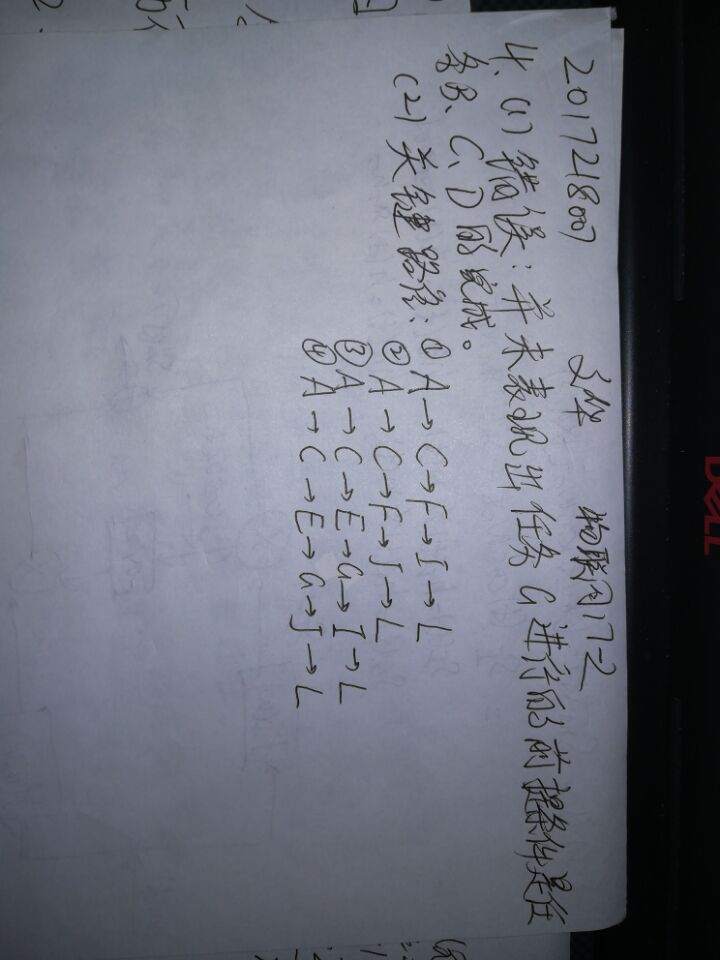 2017218007 物联网17-2
4、(1) 错误：并未表现出任务G进行的前提条件是任
务B、C、D的完成。
(2) 关键路径：① A→C→F→I→L
② A→C→F→J→L
③ A→C→E→G→I→L
④ A→C→E→G→J→L
DELL